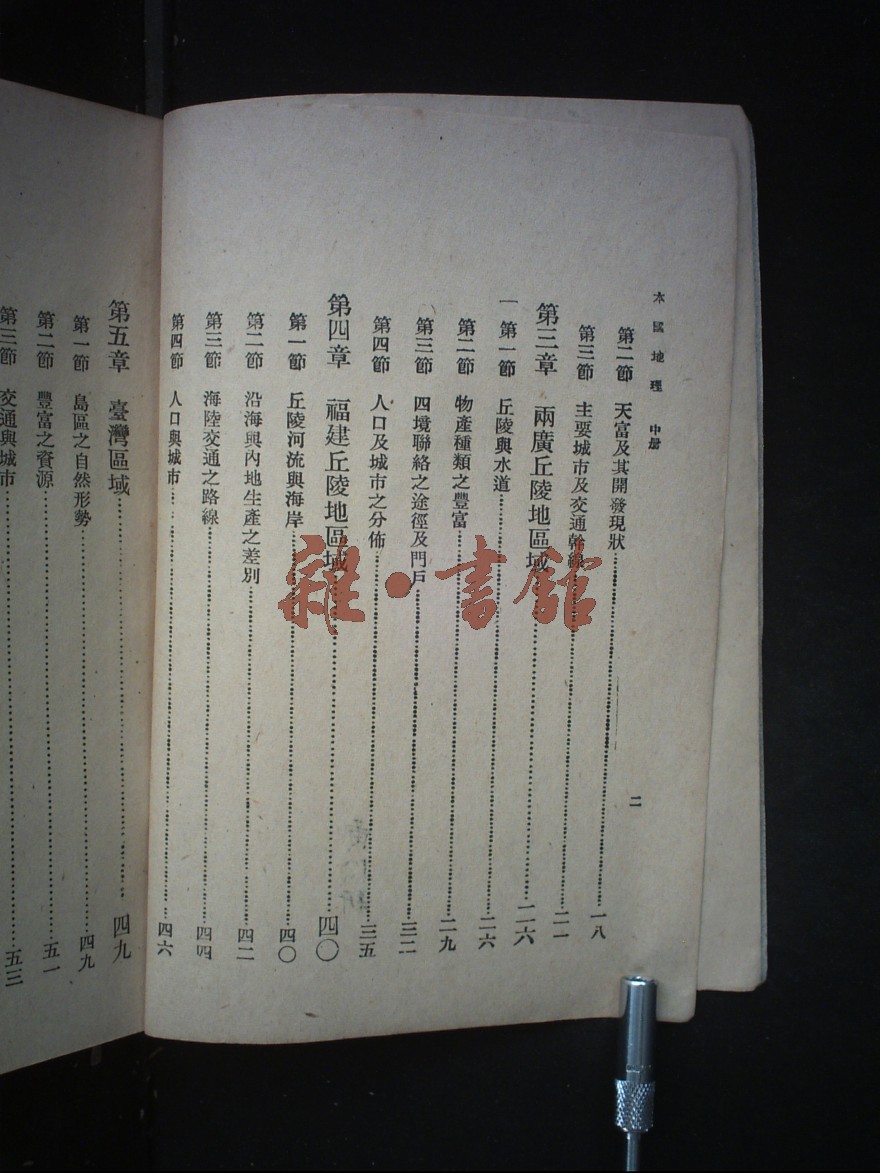 本國地理 中册
二
第二節 天富及其開發現狀……一八
第三節 主要城市及交通幹線……二一
第三章 兩廣丘陵地區域……二六
第一節 丘陵與水道……二六
第二節 物產種類之豐富……二九
第三節 四境聯絡之途徑及門戶……三二
第四節 人口及城市之分佈……三五
第四章 福建丘陵地區域……四〇
第一節 丘陵河流與海岸……四〇
第二節 沿海與內地生產之差別……四二
第三節 海陸交通之路線……四四
第四節 人口與城市……四六
第五章 臺灣區域……四九
第一節 島區之自然形勢……四九
第二節 豐富之資源……五一
第三節 交通與城市……五三
雜·書館